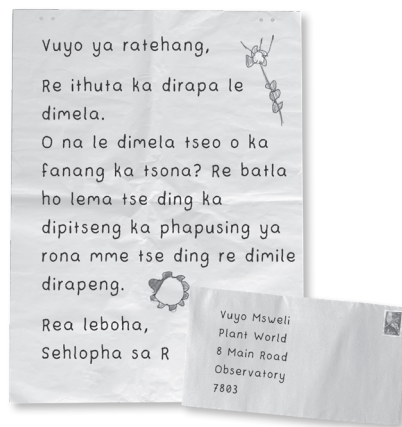 Vuyo ya ratehang,
Re ithuta ka dirapa le
dimela.
O na le dimela tseo o ka
fanang ka tsona? Re batla
ho lema tse ding ka
dipitseng ka phapusing ya
rona mme tse ding re dimile
dirapeng.
Rea leboha,
Sehlopha sa R
Vuyo Msweli
Plant World
8 Main Road
Observatory
7803